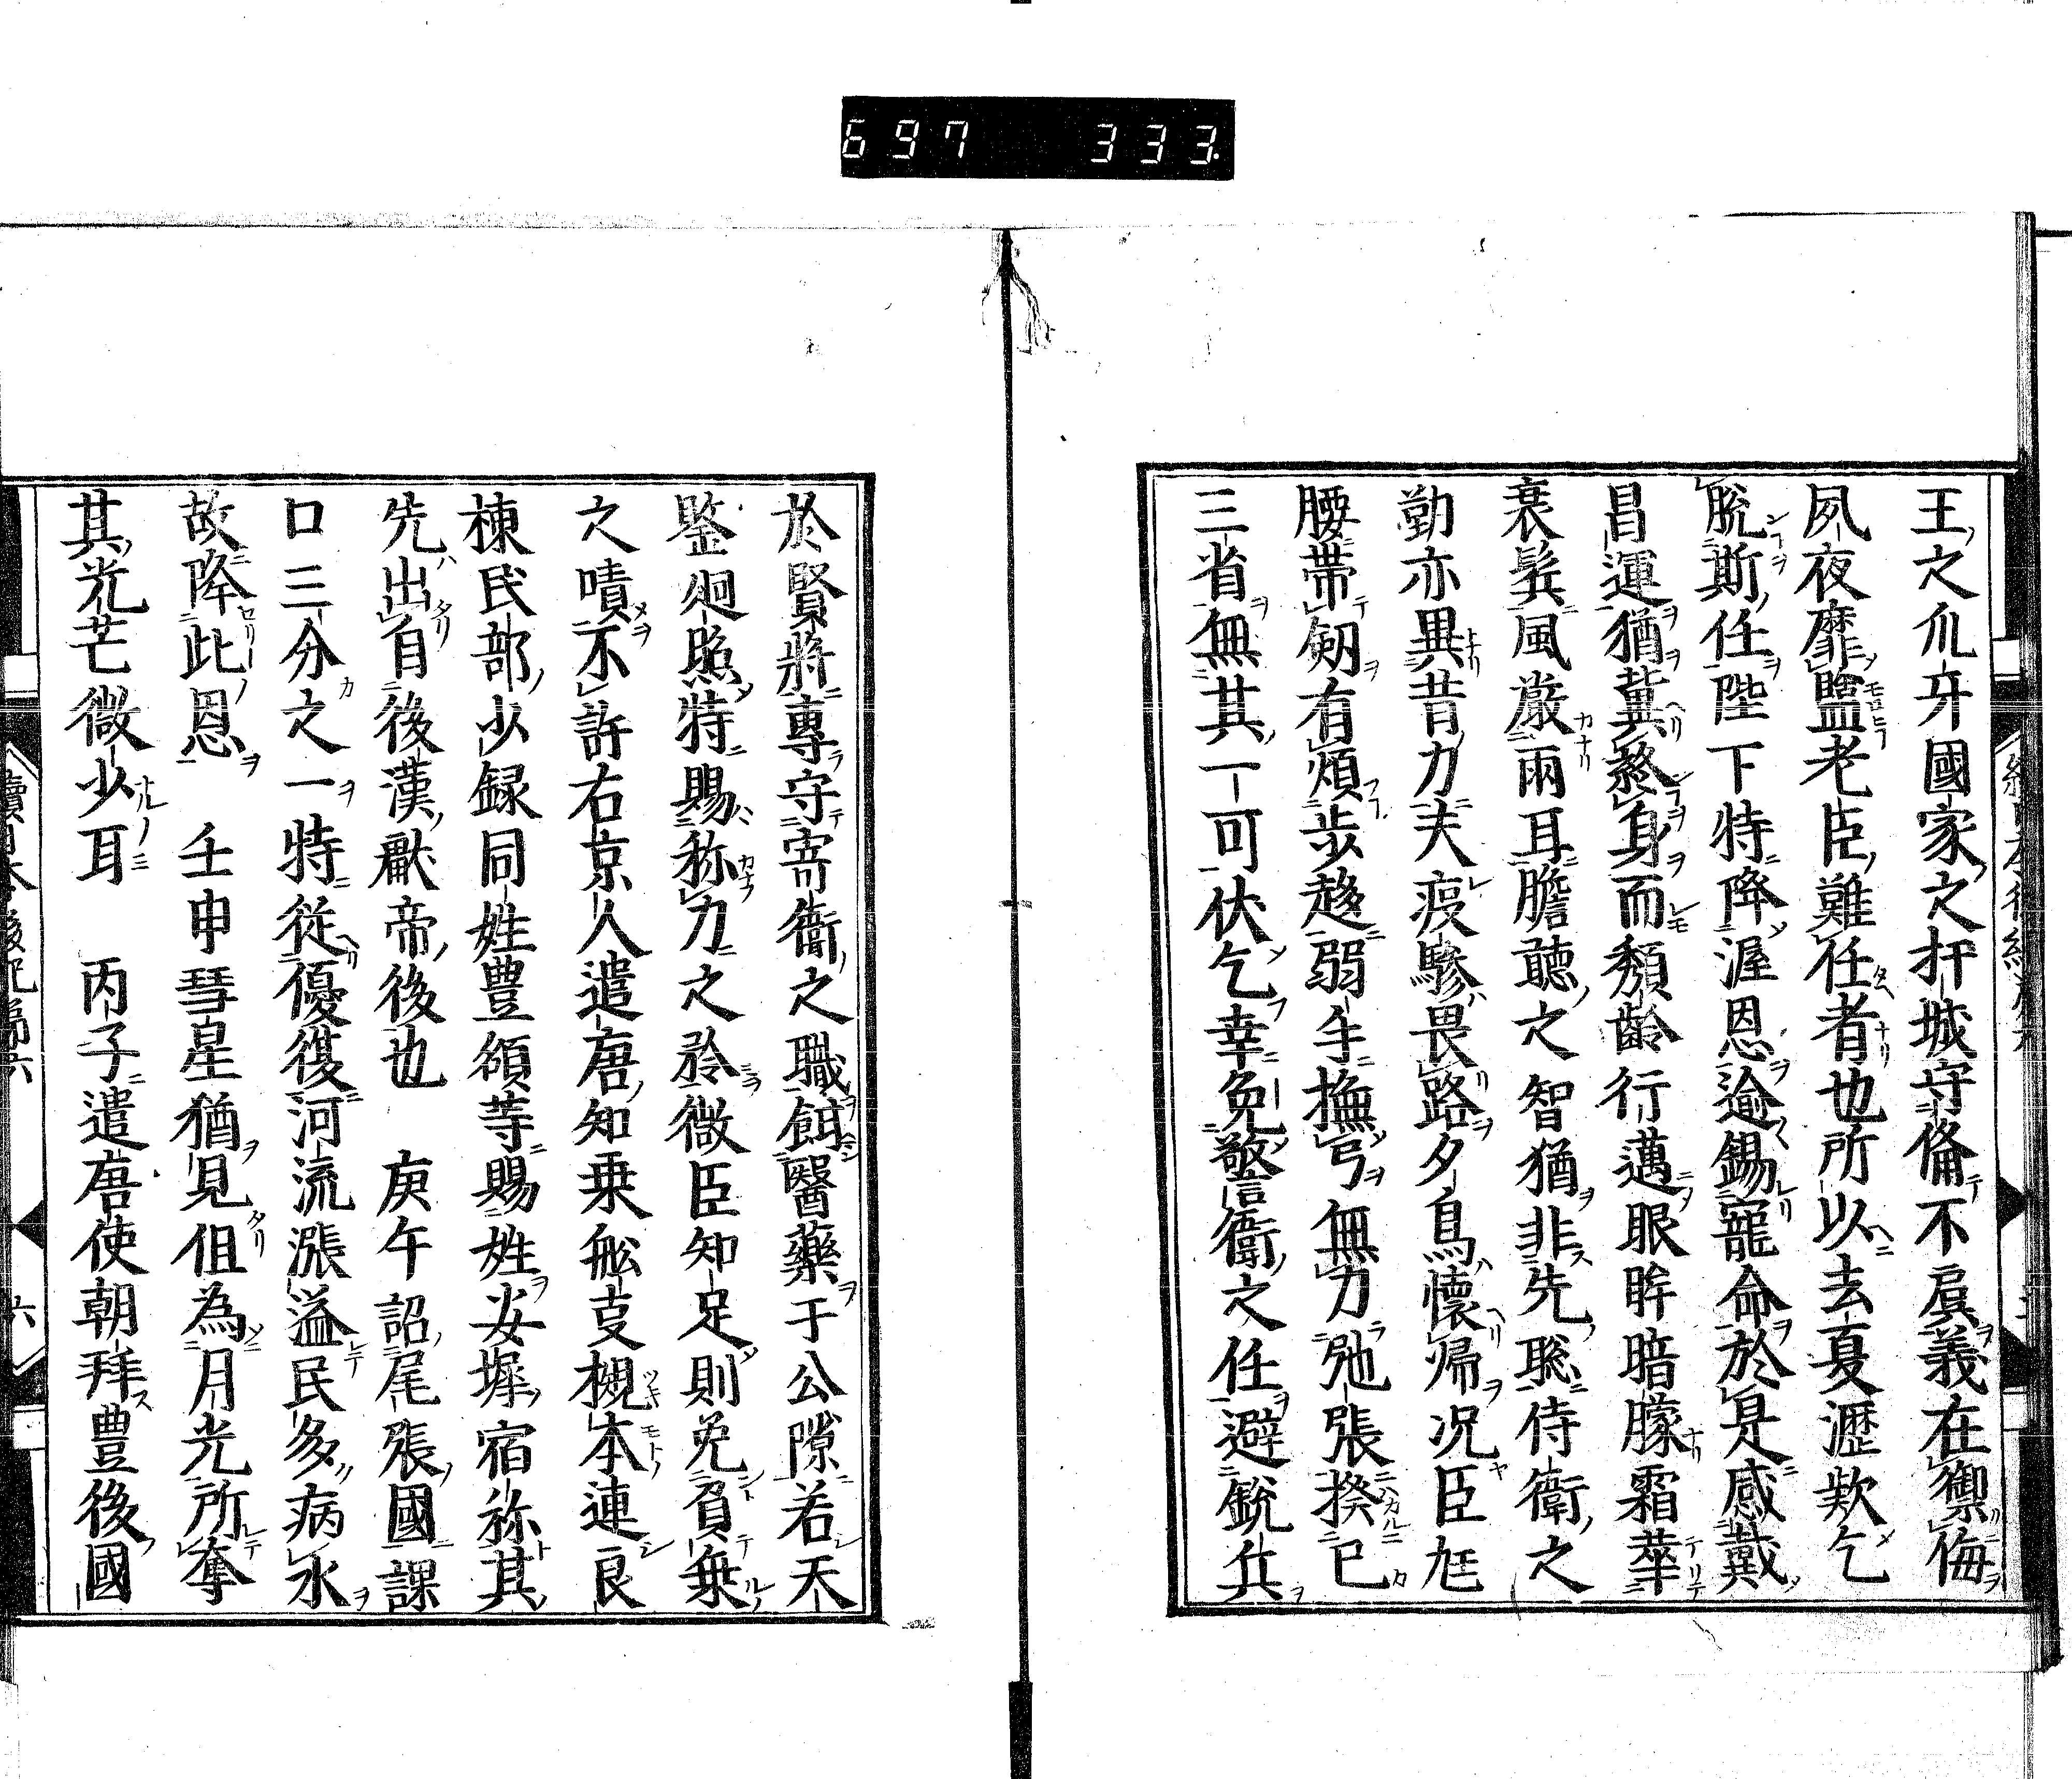 697 333
王之爪牙國家之扞城守俻不虞義在禦侮
夙夜靡盬老臣難任者也所以去夏瀝欵乞
脱斯任陛下特降渥恩逾錫寵命於是感戴
昌運猶冀緩身而頽齡行邁眼眸暗朦霜華
衰鬓風嚴兩耳膽聽之智猶非先聡侍衛之
勤亦異昔力夫疲驂畏路夕鳥懷帰况臣尫
腰帶劔有煩歩趍弱手撫弓無力弛張揆已
三省無其一可伏乞幸免警衛之任避銃兵
於賢將專守寄衛之職餌醫藥于公隙若天
鑒廻照特賜称力之矜微臣知足則免負乗
之嘖不許右京人遣唐知乗舩㕝槻本連良
棟民部少録同姓豊額等賜姓安墀宿祢其
先出自後漢獻帝後也 庚午詔尾張國課
口三分之一特従優復河流漲溢民多病水
故降此恩 壬申彗星猶見伹為月光所奪
其光芒微少耳 丙子遣唐使朝拜豊後國
續日本後紀第六
六